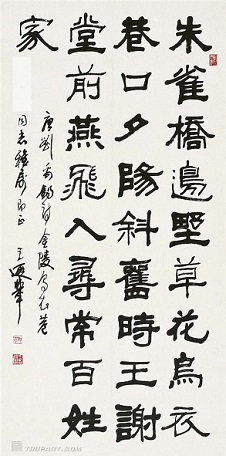 朱雀橋邊墅草花烏衣
巷口夕陽斜舊時王謝
堂前燕飛入尋常百姓
家
唐劉禹錫詩金陵烏衣巷
同志雅屬即正
王遐舉